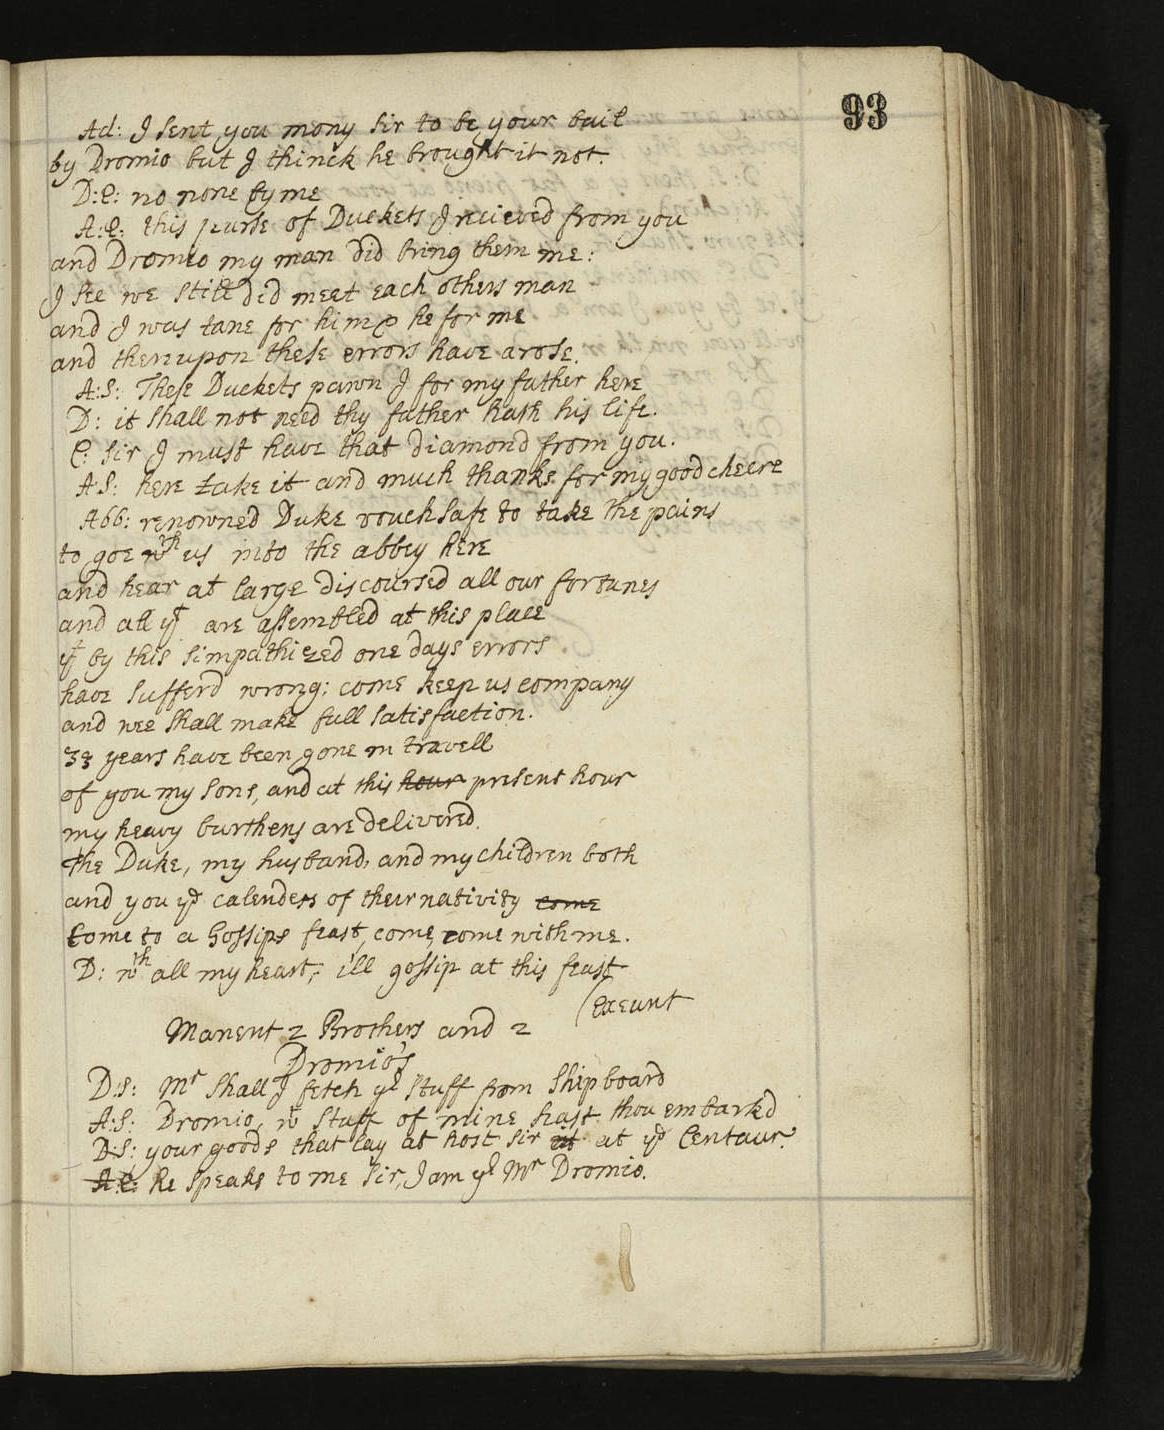 93
Ad: I sent you mony sir to be your bail
by Dromio but I thinck he brought it not.
D:E: no none by me
A:E: this purse of Duckets I recieved from you
and Dromio my man did bring them me:
I see we still did meet each others man
and I was tane for him & he for me
and thereupon these errors have arose.
A:S: These Duckets pawn I for my father here
D: it shall not need thy father hath his life.
C: sir I must have that diamond from you.
A:S: here take it and much thanks for my good cheere
Abb: renowned Duke vouchsafe to take the pains
to goe wth us into the abbey here
and hear at large discoursed all our fortunes
and all yt are assembled at this place
yt by this simpathiezed one days errors
have sufferd wrong: come keep us company
and wee shall make full satisfaction.
33 years have been gone in travell
of you my sons, and at this hour present hour
my heavy burthens are delivered.
the Duke, my husband, and my children both
and you ye calenders of their nativity come
come to a Gossips feast, come, come with me.
D: wth all my heart, i'll gossip at this feast
(Exeunt
Manent 2 Brothers and 2
Dromio's
D:S: Mr shall I fetch yr stuff from shipboard
A:S: Dromio, wt stuff of mine hast thou embarkd
D:S: your goods that lay at host sir at ye Centaur.
A:E: he speaks to me sir, I am yr Mr Dromio.